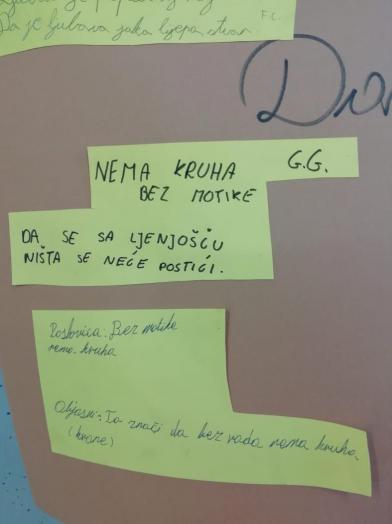 Da je ljubav jako lijepa stvar.
F.C.
NEMA KRUHA G.G.
BEZ MOTIKE
DA SE SA LJENJOŠĆU
NIŠTA SE NEĆE POSTIĆI.
Poslovica: Bez motike
nema kruha
Objasni: To znači da bez rada nema kruha.
(hrane)